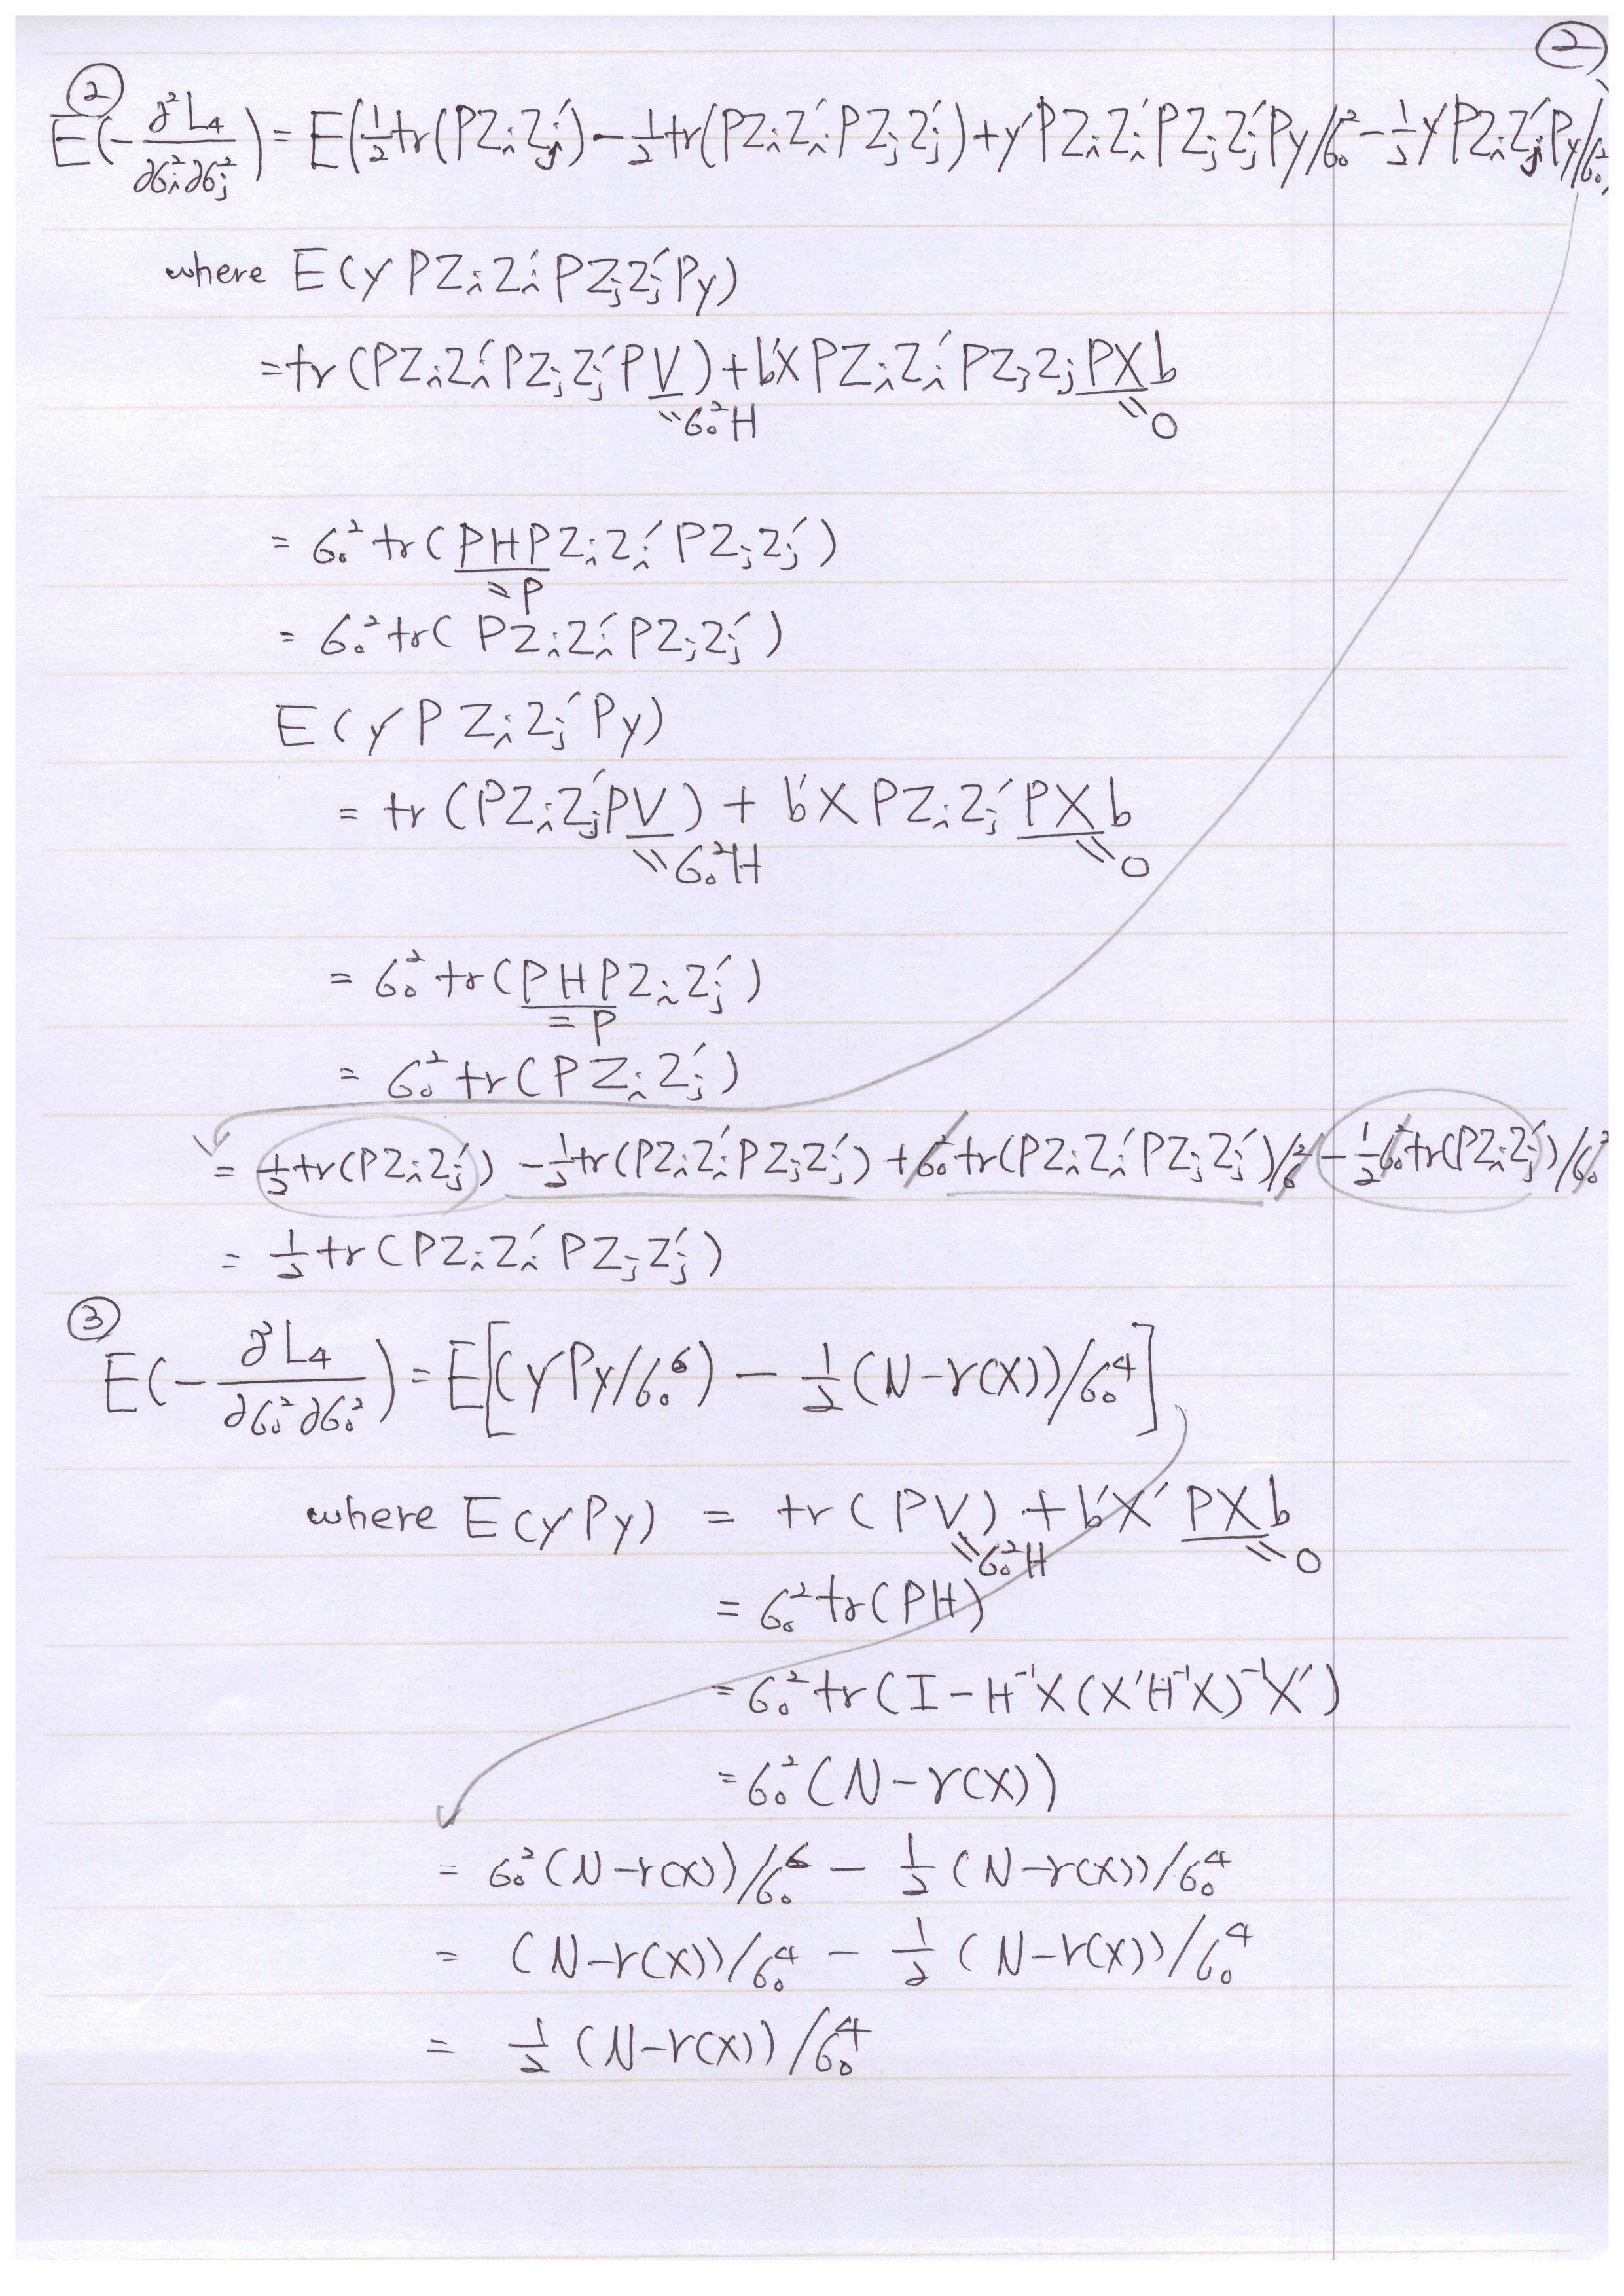 ②
②
E(-∂²L₄/∂σᵢ²∂σⱼ²) = E(½tr(PZᵢZⱼ′) - ½tr(PZᵢZᵢ′PZⱼZⱼ′) + y′PZᵢZᵢ′PZⱼZⱼ′Py/σ₀² - ½y′PZᵢZⱼ′Py/σ₀²)
where E(y′PZᵢZᵢ′PZⱼZⱼ′Py)
= tr(PZᵢZᵢ′PZⱼZⱼ′PV) + b′XPZᵢZᵢ′PZⱼZⱼPXb
=σ₀²H =0
= σ₀² tr(PHPZᵢZᵢ′PZⱼZⱼ′)
=P
= σ₀² tr(PZᵢZᵢ′PZⱼZⱼ′)
E(y′PZᵢZⱼ′Py)
= tr(PZᵢZⱼ′PV) + b′XPZᵢZⱼ′PXb
=σ₀²H =0
= σ₀² tr(PHPZᵢZⱼ′)
=P
= σ₀² tr(PZᵢZⱼ′)
= ½tr(PZᵢZⱼ′) - ½tr(PZᵢZᵢ′PZⱼZⱼ′) + σ₀²tr(PZᵢZᵢ′PZⱼZⱼ′)/σ₀² - ½σ₀²tr(PZᵢZⱼ′)/σ₀²
= ½tr(PZᵢZᵢ′PZⱼZⱼ′)
③
E(-∂²L₄/∂σ₀²∂σ₀²) = E[(y′Py/σ₀⁶) - ½(N-r(X))/σ₀⁴]
where E(y′Py) = tr(PV) + b′X′PXb
=σ₀²H =0
= σ₀² tr(PH)
= σ₀² tr(I-H⁻¹X(X′H⁻¹X)⁻X′)
= σ₀²(N-r(X))
= σ₀²(N-r(X))/σ₀⁶ - ½(N-r(X))/σ₀⁴
= (N-r(X))/σ₀⁴ - ½(N-r(X))/σ₀⁴
= ½(N-r(X))/σ₀⁴